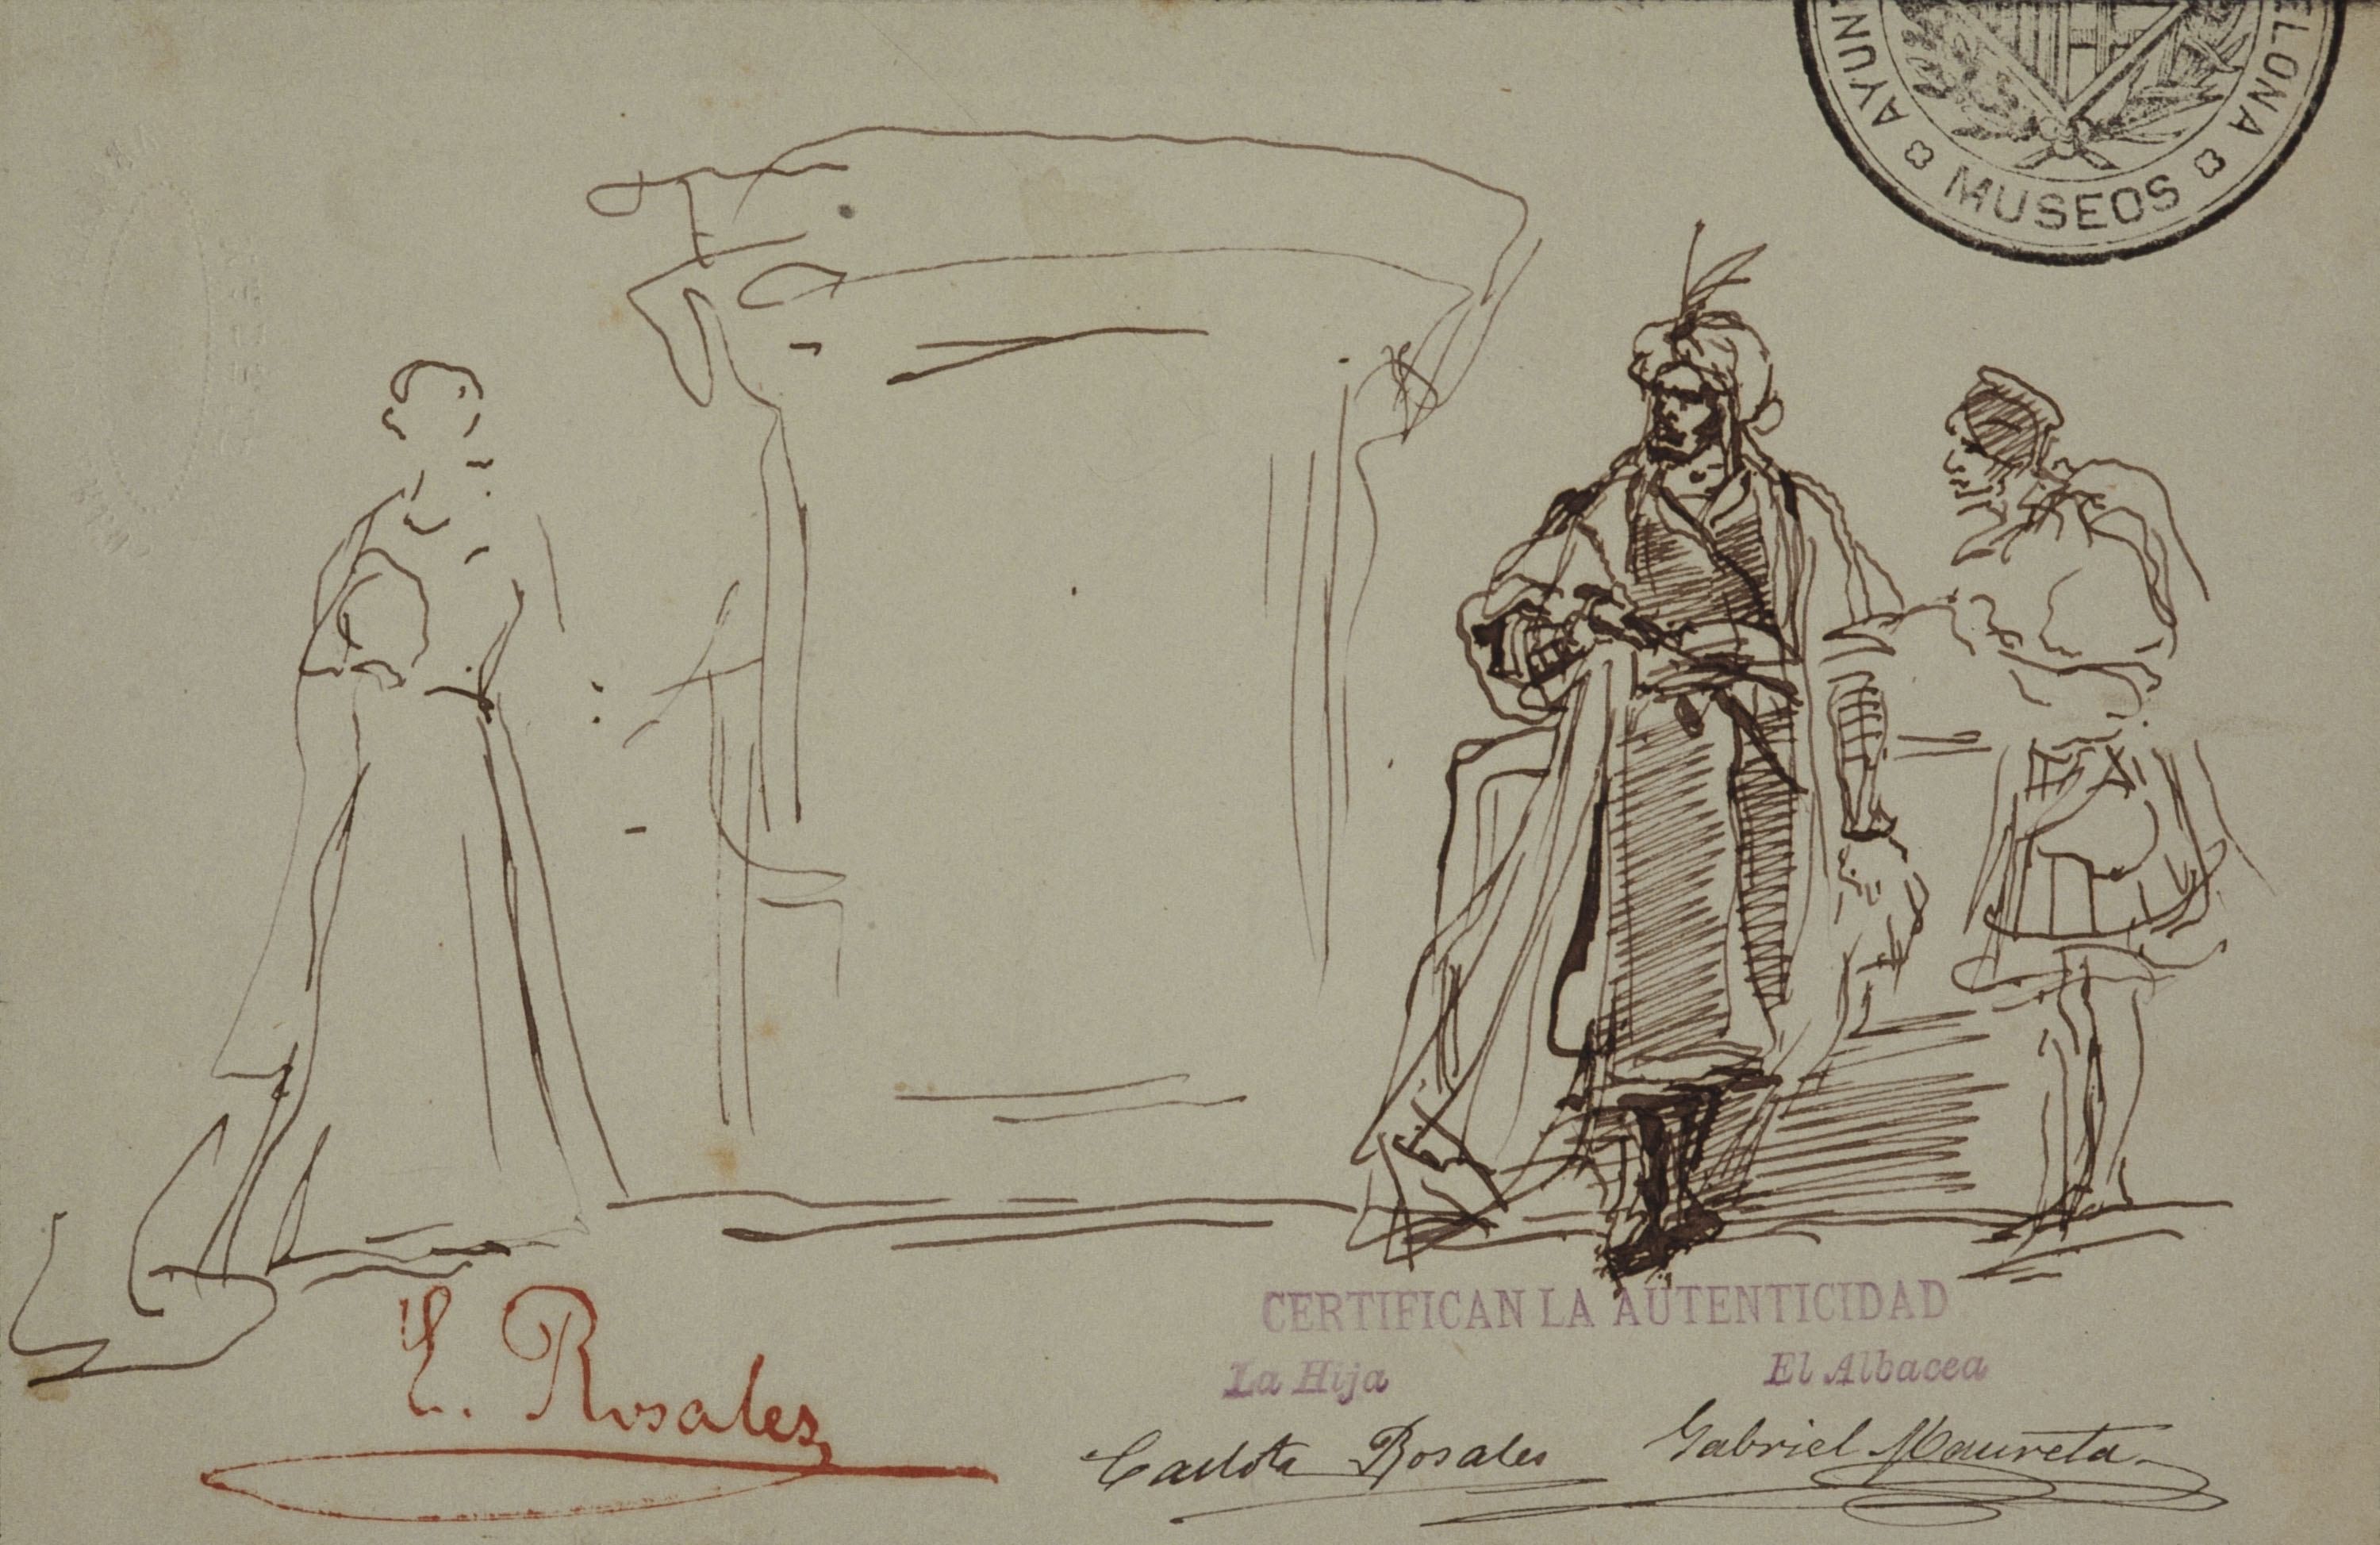 AYUN ELONA
MUSEOS
E. Rosales
CERTIFICAN LA AUTENTICIDAD
La Hija El Albacea
Carlota Rosales Gabriel Maureta